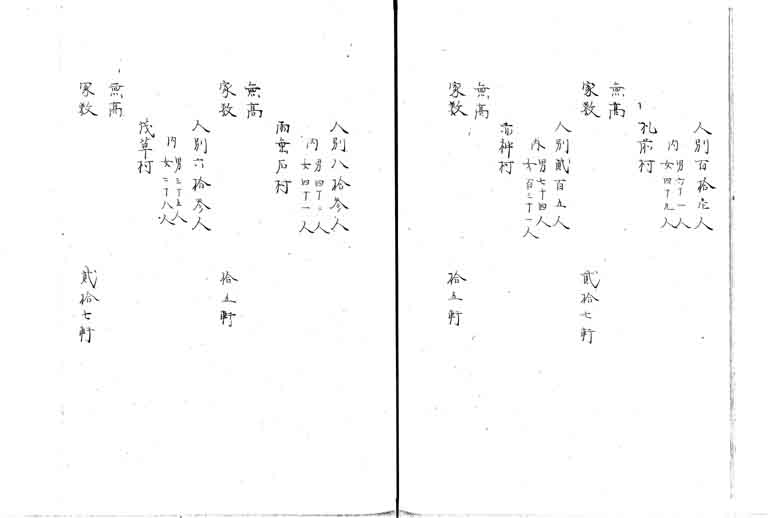 人別百拾壱人
内 男六十一人
女四十九人
札前村
無高
家数 貳拾七軒
人別貳百五人
内 男七十四人
女百三十一人
赤神村
無高
家数 拾五軒
人別八拾参人
内 男四十二人
女四十一人
雨垂石村
無高
家数 拾五軒
人別六拾参人
内 男三十五人
女二十八人
茂草村
無高
家数 貳拾七軒